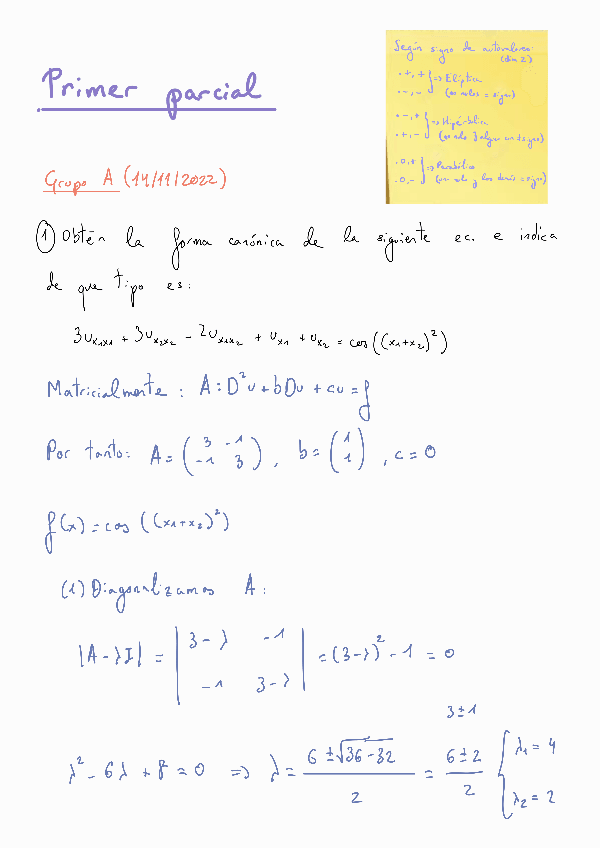 Primer parcial
Según signo de autovalores:
(dim 2)
· +, + } => Elíptica
· -, - (∞ soles = signo)
· -, + } => Hipérbolica
· +, - (∞ solo y algun cont signo)
· 0, + } => Parabólica
· 0, - (un solo y los demás = signo)
Grupo A (14/11/2022)
① Obtén la forma canónica de la siguiente ec. e indica
de que tipo es:
3u_{x1x1} + 3u_{x2x2} - 2u_{x1x2} + u_{x1} + u_{x2} = cos((x1+x2)^2)
Matricialmente: A:D²u + bDu + cu = f
Por tanto: A = ( 3 -1 ; -1 3 ), b = ( 1 ; 1 ), c = 0
f(x) = cos ((x1+x2)²)
(1) Diagonalizamos A:
|A-λI| = | 3-λ -1 ; -1 3-λ | = (3-λ)² - 1 = 0
3±1
λ² - 6λ + 8 = 0 => λ = (6 ± √(36-32))/2 = (6±2)/2 { λ1 = 4 ; λ2 = 2